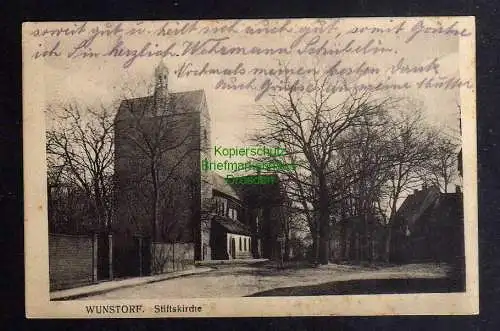 soweit gut u. heilt sich auch gut, somit Grüße
ich Sie herzlich. Wehrmann Schübelin.
Nochmals meinen besten Dank
auch Grüße von meine Mutter
Kopierschutz
Briefmarken
Dresden
WUNSTORF. Stiftskirche